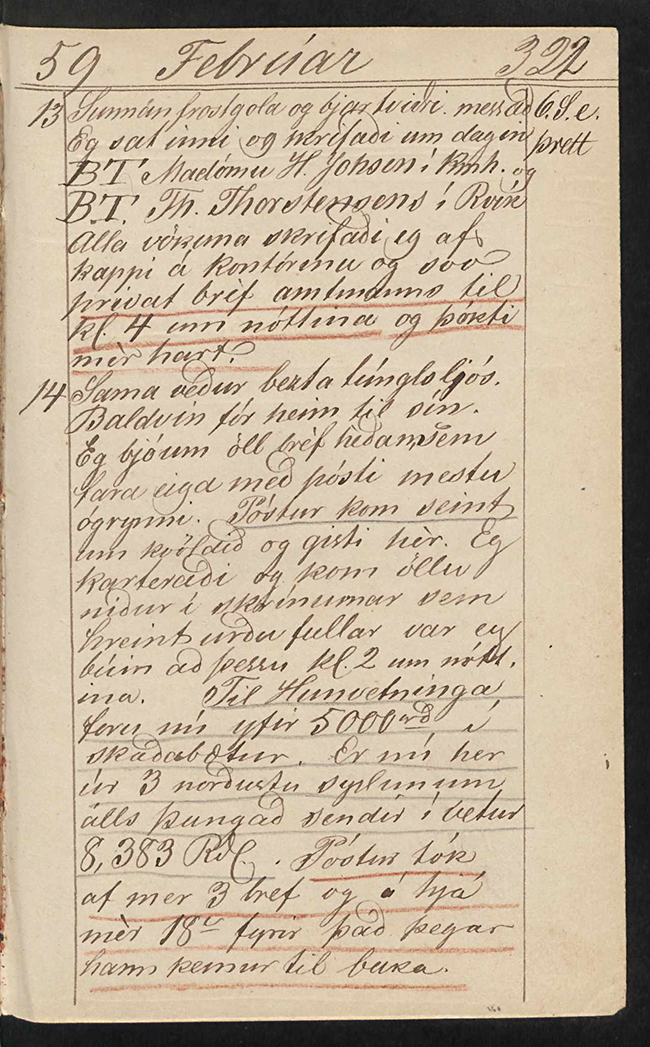 59 Februar 322
13 Sunnan frostgola og bjartviðri. messað 6. S. e.
Eg sat inni og skrifaði um dagin þrett
B.T. Madömu H. Johsen í Kmh. og
B.T. Th. Thorstensens í Rvík
Alla vökuna skrifaði eg af
kappi á kontórinu og svo
privat bréf amtmanns til
kl. 4 um nóttina og þókti
mèr hart.
14 Sama veður bezta túnglsljós.
Baldvin fór heim til sín.
Eg bjó um öll bréf héðan, sem
fara eiga með pósti mestu
ógrynni. Póstur kom seint
um kvöldið og gisti hèr. Eg
karteraði og kom öllu
niður í skrínurnar sem
hreint urðu fullar var eg
búin að þessu kl. 2 um nótt,
ina. Til Hunvetninga
foru nú yfir 5000 rd í
skaðabætur. Er nú her
úr 3 norðustu syslunum
álls þungað sendir í vetur
8,383 Rdl. . Póstur tók
af mer 3 bref og á hjá
mèr 18 fyrir það þegar
hann kemur til baka.